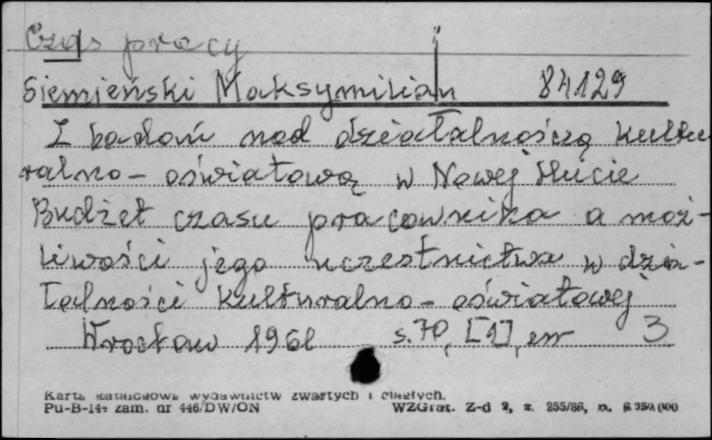 Czas pracy
Siemieński Maksymilian 84129
Z badań nad działalnością kultu
ralno-oświatową w Nowej Hucie
Budżet czasu pracownika a moż-
liwości jego uczestnictwa w dzia-
łalności kulturalno-oświatowej
Wrocław 1961 s. 70, [1], err 3
Karta katalogowa wydawnictw zwartych i ciągłych.
Pu-B-144 zam. nr 446/DW/ON WZGraf. Z-d 2, z. 255/86, n. 350.000